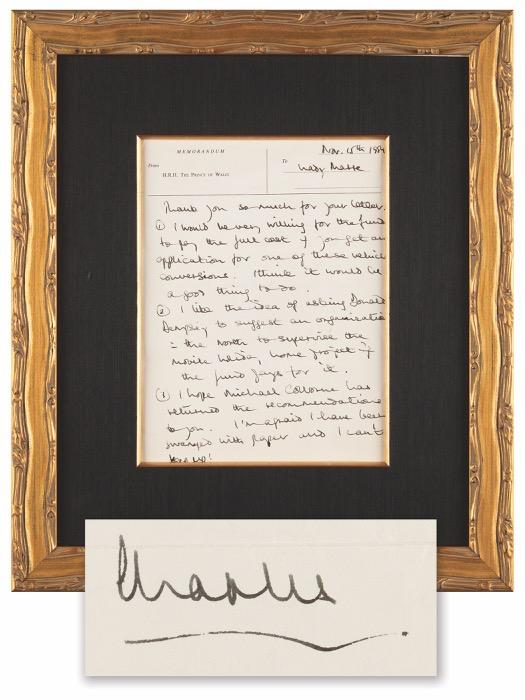 MEMORANDUM
From
H.R.H. THE PRINCE OF WALES
Nov. 15th 198
To
Lady
Thank you so much for your letter.
① I would be very willing for the fund
to pay the full cost if you get an
application for one of these vehicle
conversions. I think it would be
a good thing to do.
② I like the idea of asking Donald
Dempsey to suggest an organisation
in the North to supervise the
mobile home project if
the fund pays for it.
③ I hope Michael Colborne has
returned the recommendations
to you. I'm afraid I have been
swamped with paper and I can't
keep up!
Charles